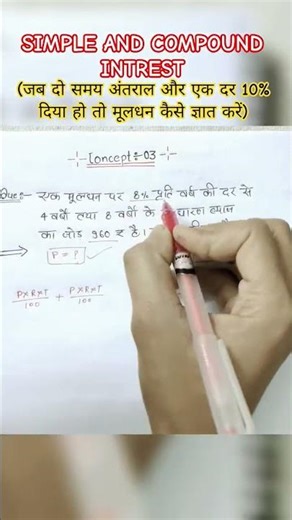 SIMPLE AND COMPOUND
INTREST
(जब दो समय अंतराल और एक दर 10%
दिया हो तो मूलधन कैसे ज्ञात करें)
Concept:- 03
Que:- एक मूलधन पर 8% प्रति वर्ष की दर से
4 वर्षो तथा 8 वर्षो के साधारण ब्याज
का जोड़ 960 ₹ है।
P = ?
P×R×T/100 + P×R×T/100